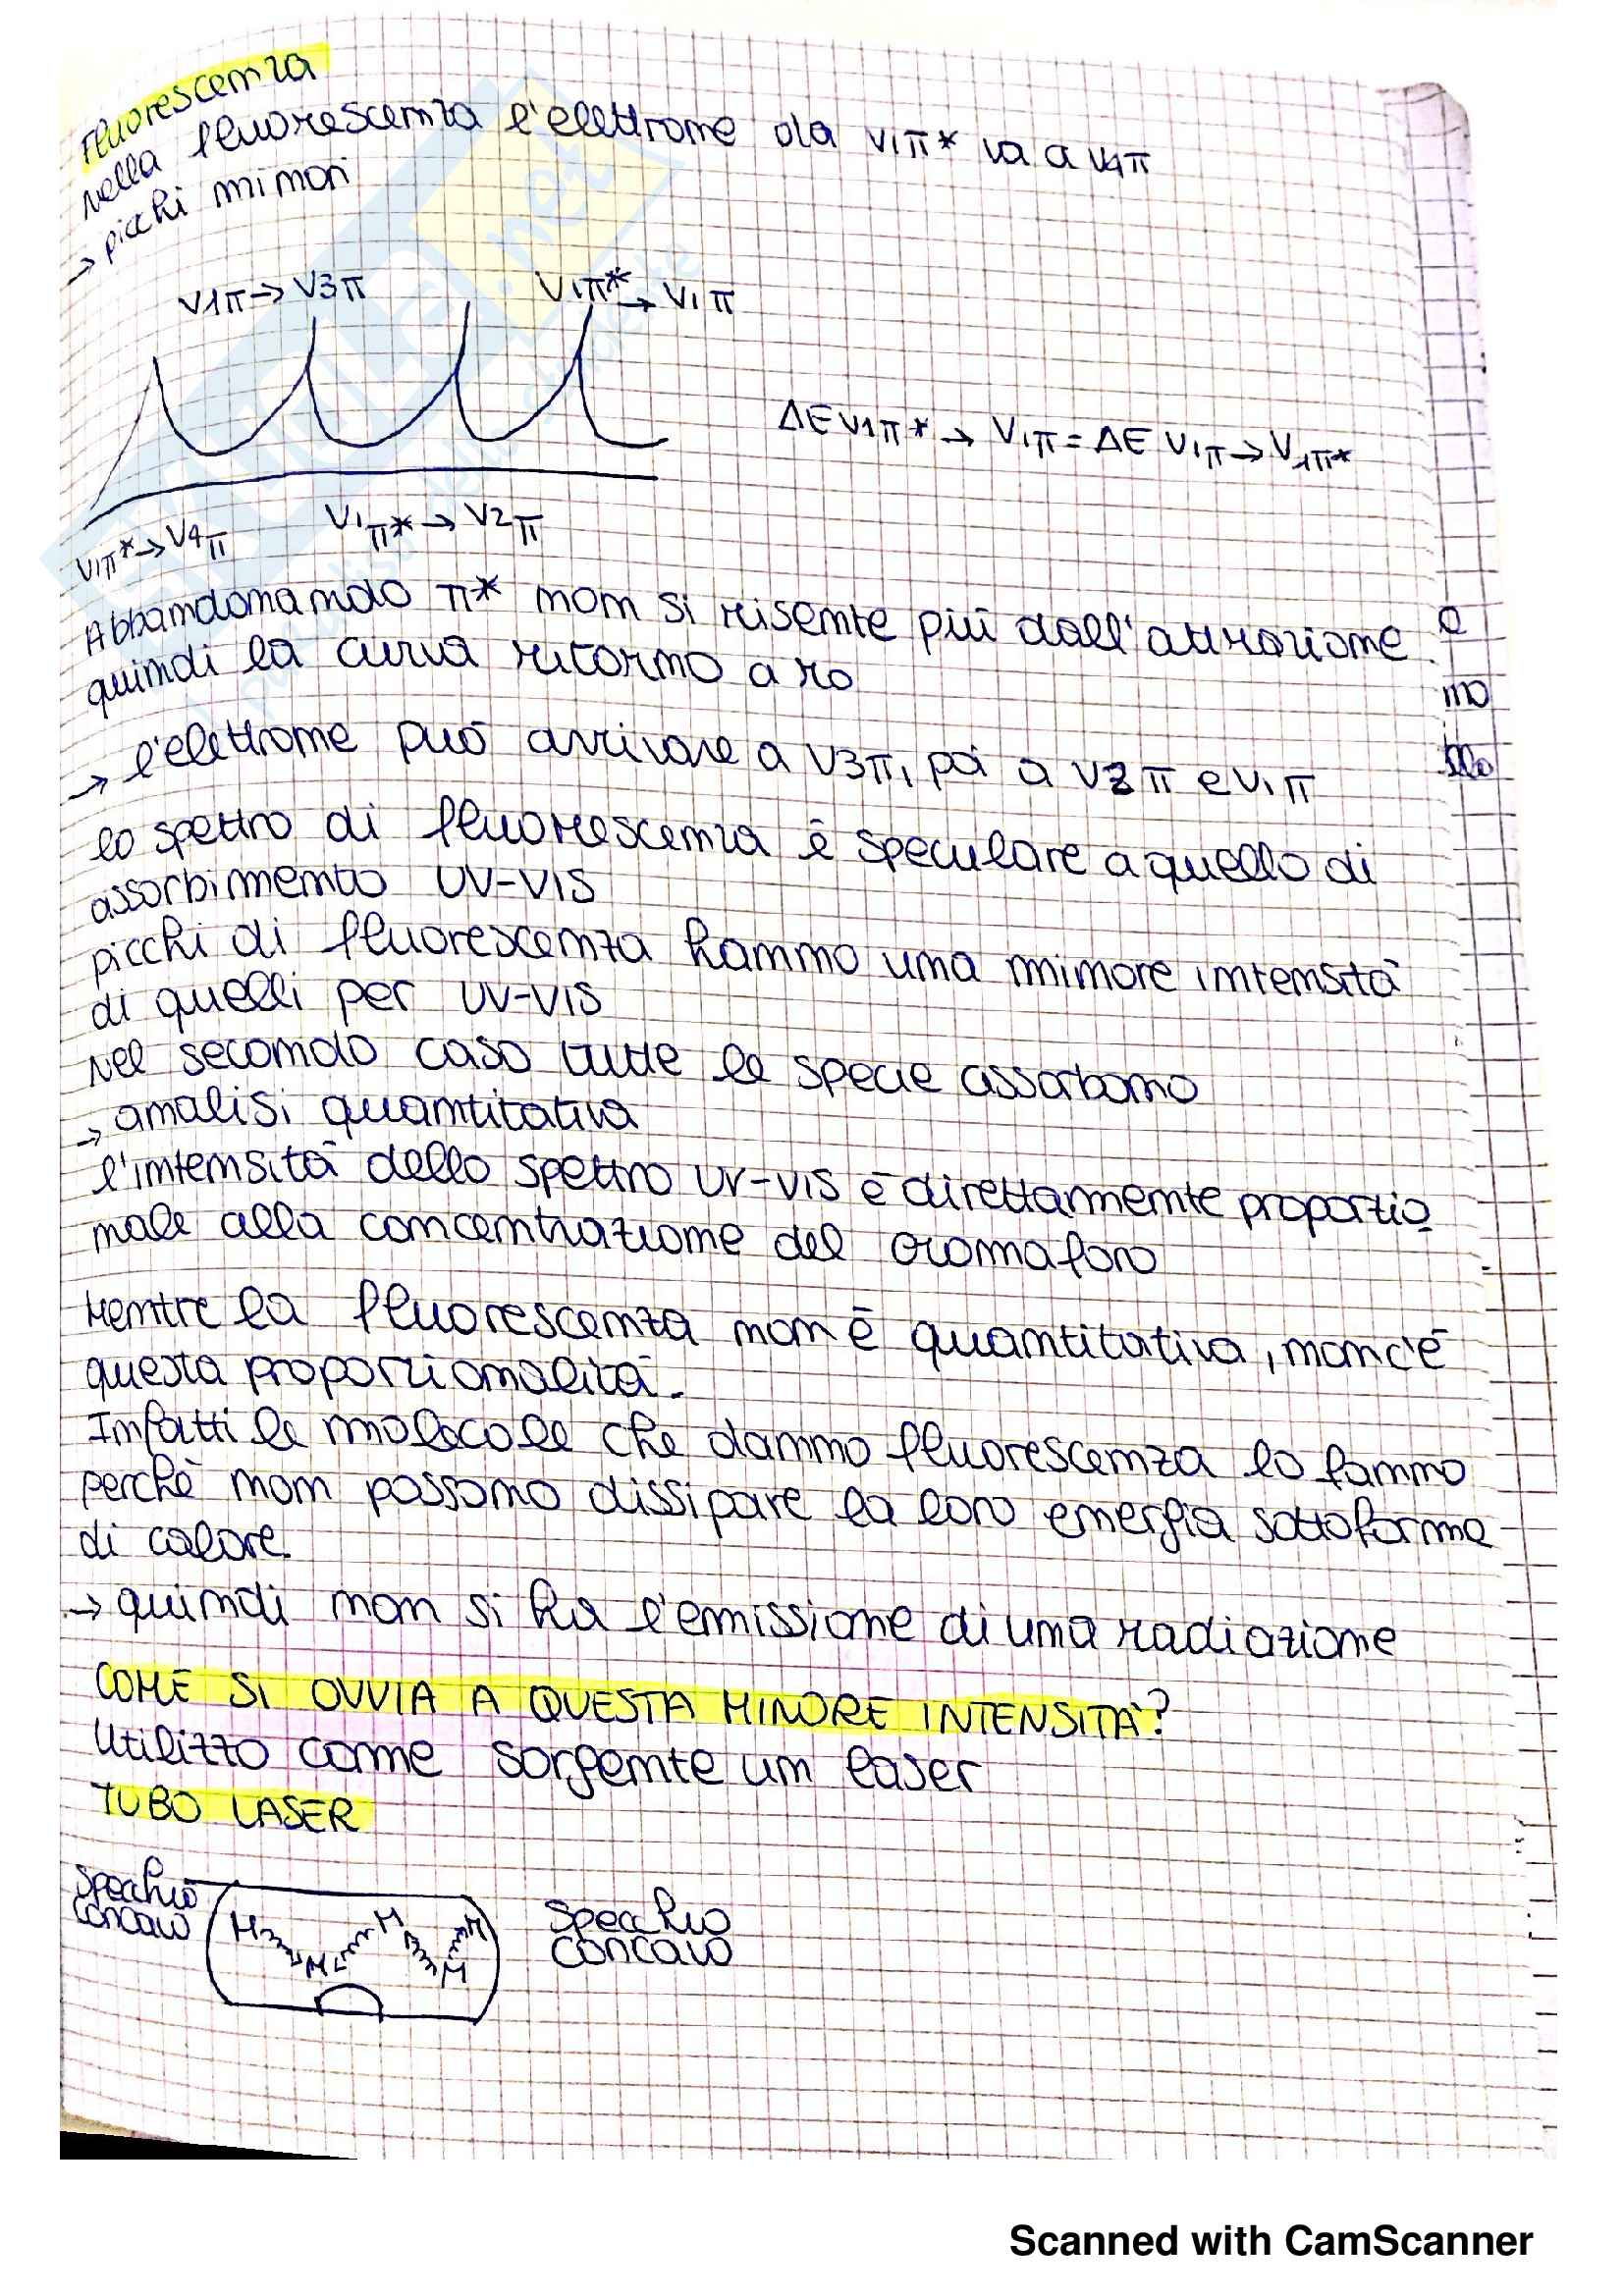 Fluorescenza
nella fluorescenza l'elettrone da v1π* va a v4π
→ picchi minori
V1π → V3π
V1π* → V1π
ΔE v1π* → V1π = ΔE V1π → V1π*
V1π* → V4π
V1π* → V2π
Abbandonando π* non si risente più dall'attrazione
quindi la curva ritorno a r0
→ l'elettrone può arrivare a V3π, poi a V2π e V1π
lo spettro di fluorescenza è speculare a quello di
assorbimento UV-VIS
picchi di fluorescenza hanno una minore intensità
di quelli per UV-VIS
Nel secondo caso tutte le specie assorbono
→ analisi quantitativa
l'intensità dello spettro UV-VIS è direttamente proportio
nale alla concentrazione del cromoforo
Mentre la fluorescenza non è quantitativa, non c'è
questa proporzionalità.
Infatti le molecole che danno fluorescenza lo fanno
perchè non possono dissipare la loro energia sottoforma
di calore.
→ quindi non si ha l'emissione di una radiazione
COME SI OVVIA A QUESTA MINORE INTENSITÀ?
Utilizzo come sorgente un laser
TUBO LASER
Specchio
concavo
M M M M M
Specchio
concavo
Scanned with CamScanner